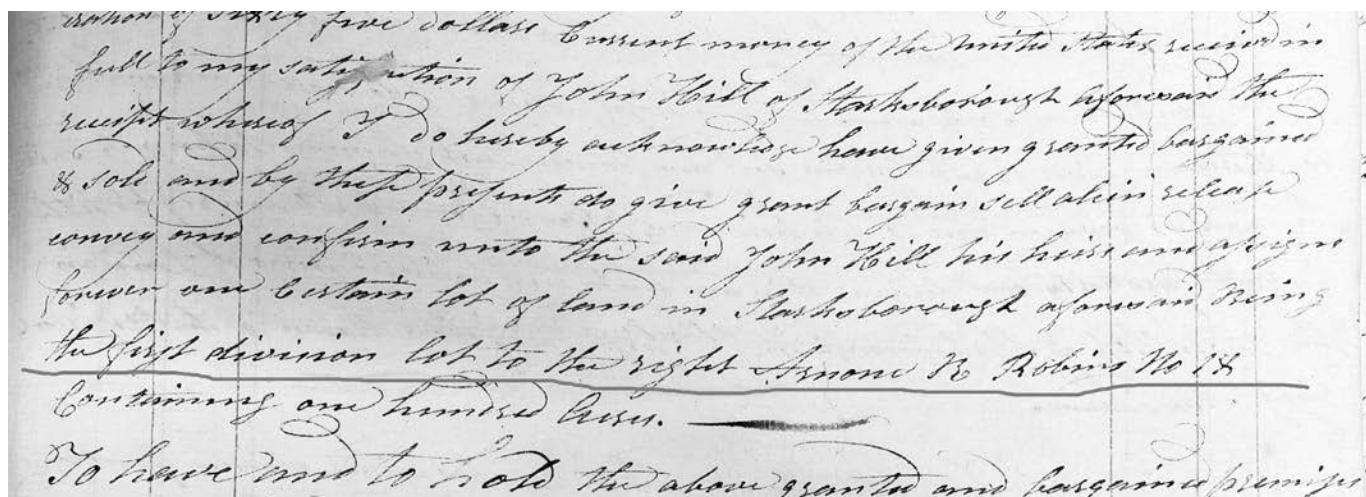 eration of sixty five dollars Current money of the United States recievd in
full to my satisfaction of John Hill of Starksborough aforesaid the
receipt whereof I do hereby acknowledge have given granted bargained
& sold and by these presents do give grant bargain sell alien release
convey and confirm unto the said John Hill his heirs and assigns
forever one Certain lot of land in Starksborough aforesaid Being
the first division lot to the right R Robins No 1 &
Containing one hundred Acres.
To have and to hold the above granted and bargained premises